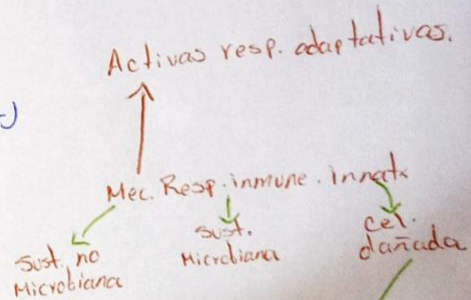 Activas resp. adaptativas.
Mec. Resp. inmune. Innata
Sust. no
Microbiana
Sust.
Microbiana
Cel.
dañada